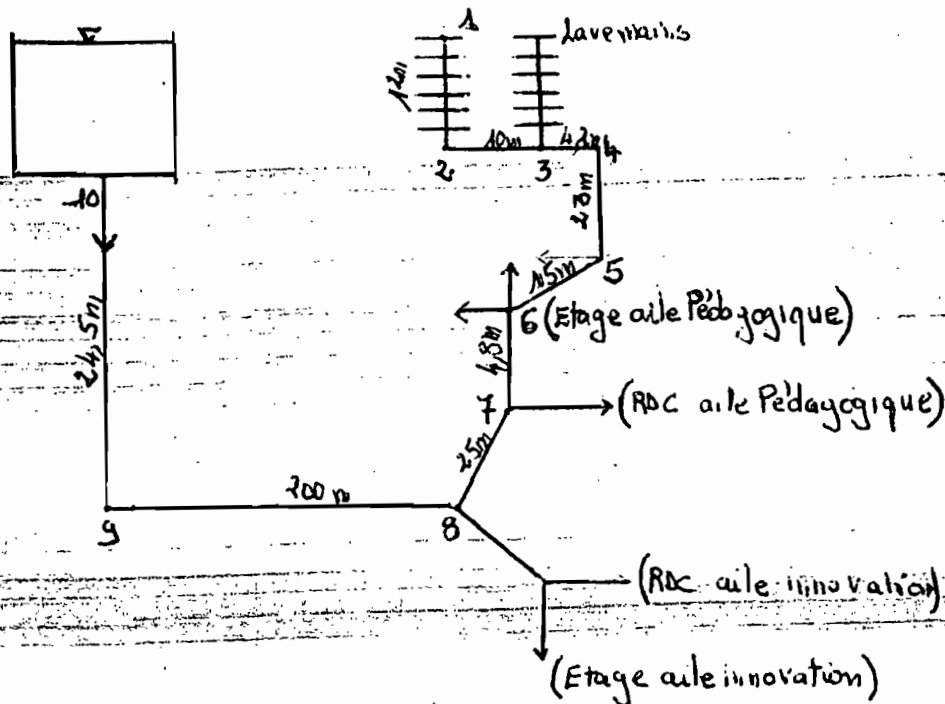 1
Lavemains
12m
10m
4,2m
4
2
3
10
23m
15m
5
6 (Etage aile Pédagogique)
24,5m
4,8m
7
(RDC aile Pédagogique)
25m
200 m
9
8
(RDC aile innovation)
(Etage aile innovation)